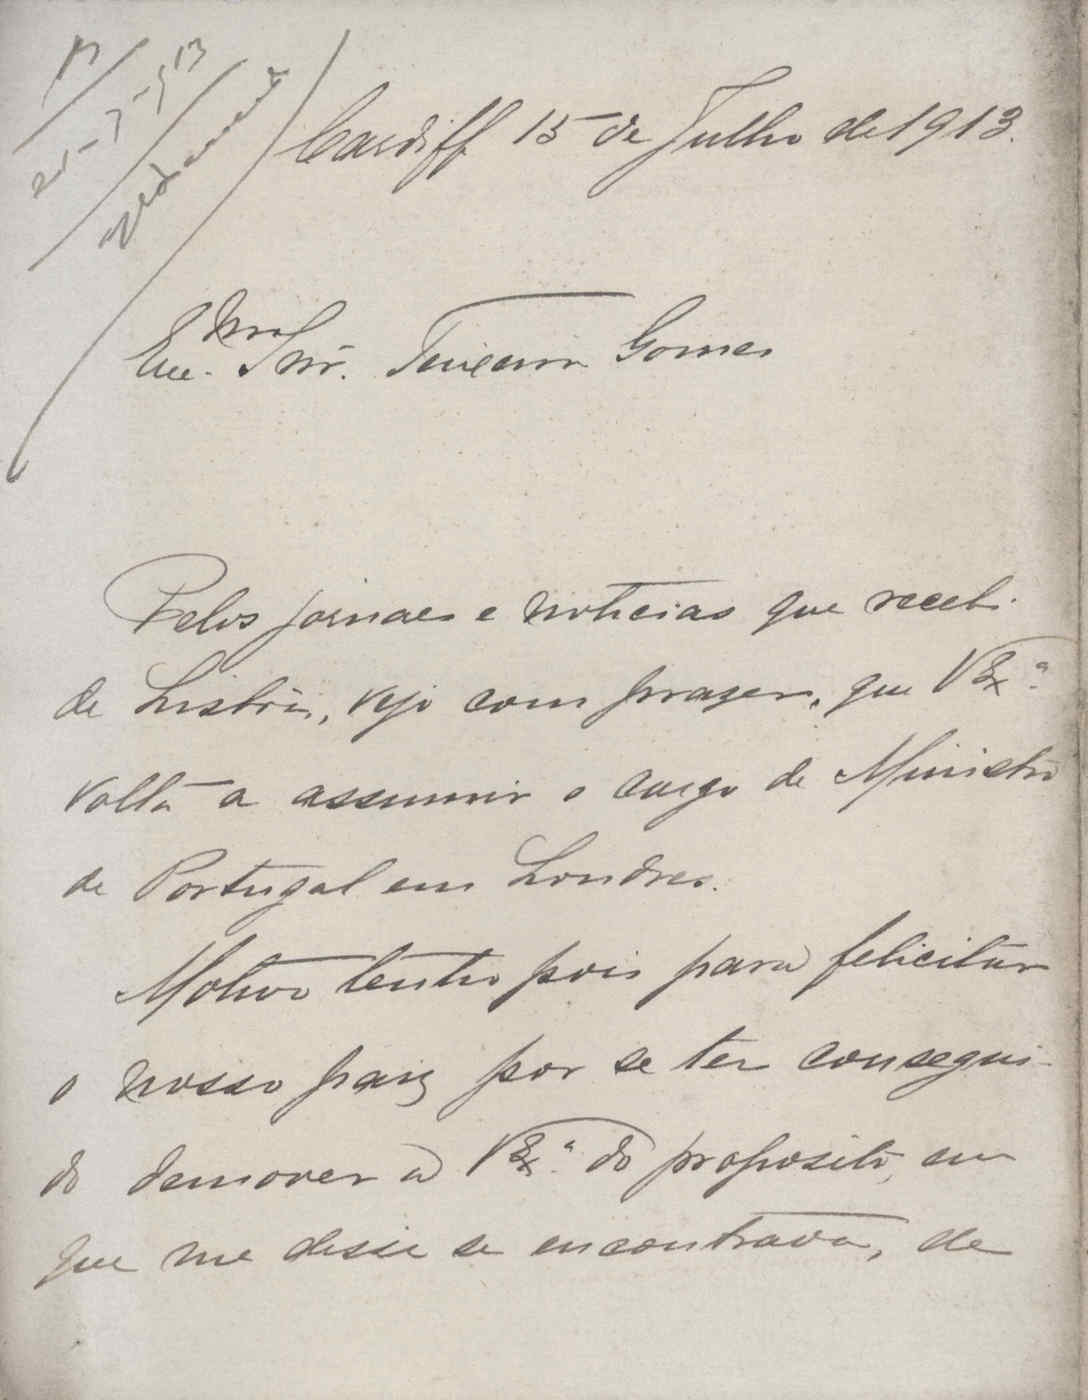 R
21-7-913
Cardiff 15 de Julho de 1913.
Exc.mo Snr. Teixeira Gomes
Pelos jornaes e noticias que recebi
de Lisbôa, vejo com prazer, que V Ex.ª
volta a assumir o cargo de Ministro
de Portugal em Londres.
Motivo tenho pois para felicitar
o nosso paiz por se ter consegui-
do demover a V Ex.ª do proposito, em
que me disse se encontrava, de